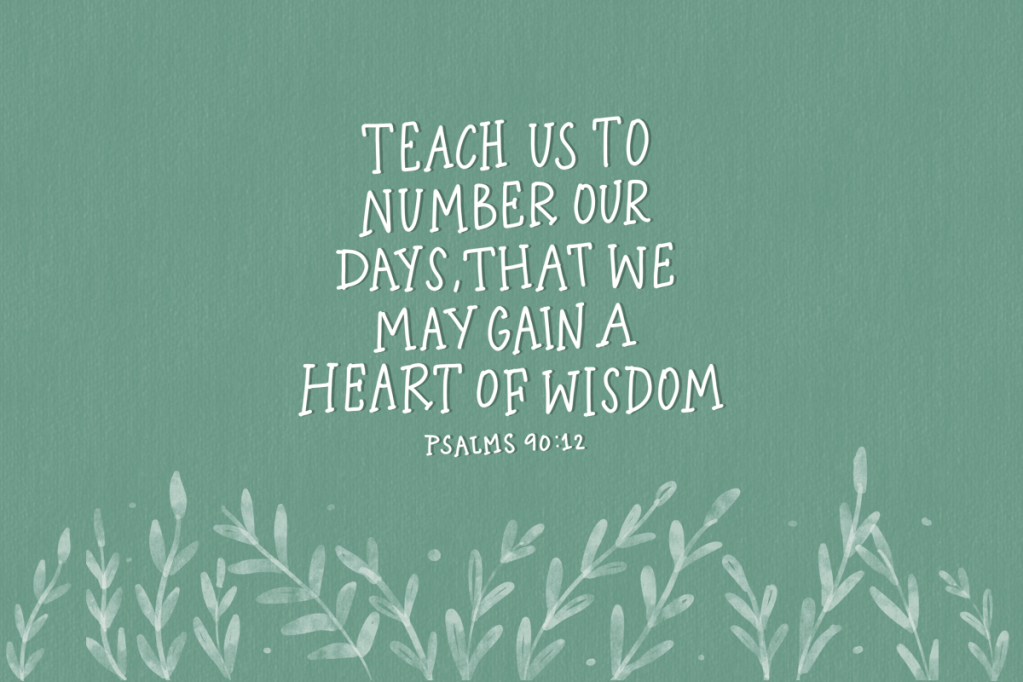 TEACH US TO
NUMBER OUR
DAYS, THAT WE
MAY GAIN A
HEART OF WISDOM
PSALMS 90:12